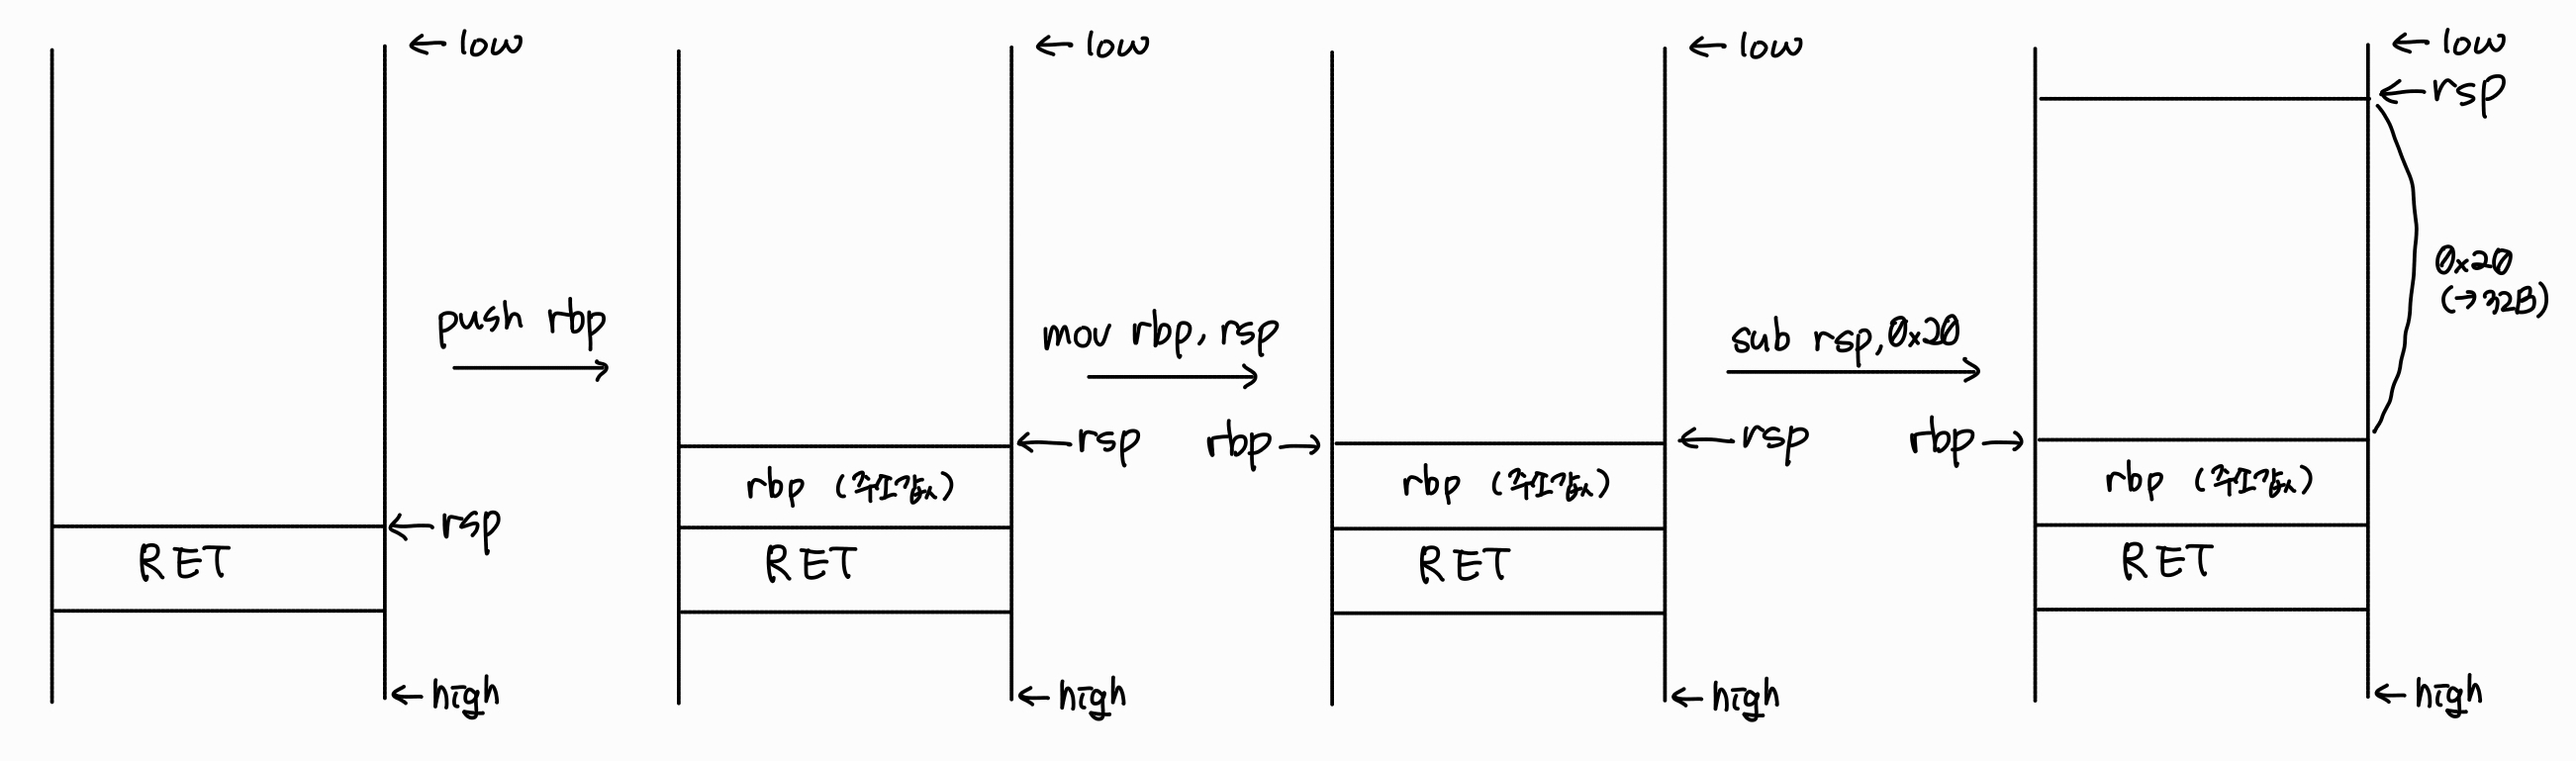 ← low
← rsp
RET
← high
push rbp
← low
← rsp
rbp (주소값)
RET
← high
mov rbp, rsp
← low
rbp →
← rsp
rbp (주소값)
RET
← high
sub rsp, 0x20
← low
← rsp
0x20
(→ 32B)
rbp →
rbp (주소값)
RET
← high